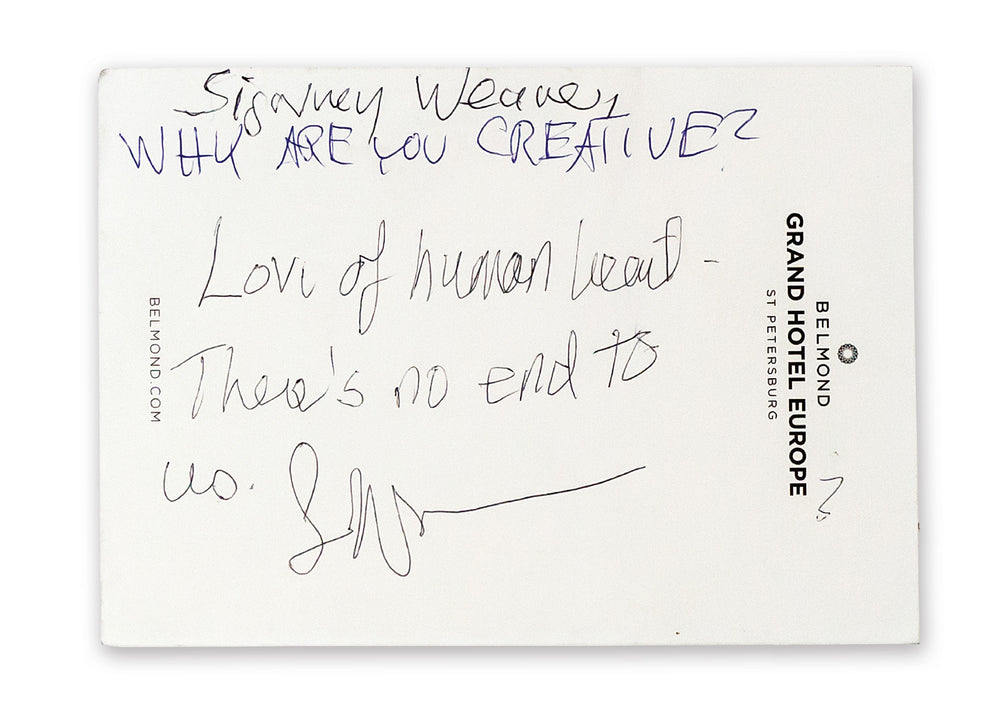 Sigourney Weaver
WHY ARE YOU CREATIVE?
Love of human heart -
There's no end to
us.
BELMOND.COM
BELMOND
GRAND HOTEL EUROPE
ST PETERSBURG
?